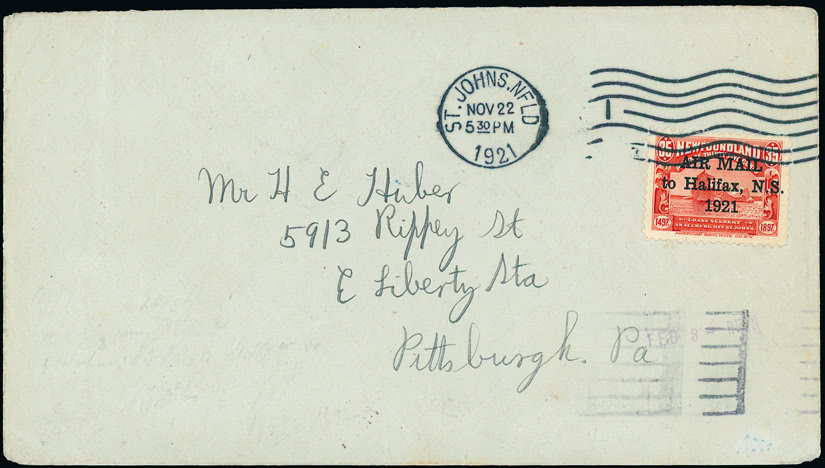 ST. JOHNS. NFLD
NOV 22
5 30 PM
1921
NEWFOUNDLAND
35 35
AIR MAIL
to Halifax, N.S.
1921
COAST SCENERY
AN ICEBERG OFF ST. JOHN'S
1497 1897
Mr H E Huber
5913 Rippey St
E Liberty Sta
Pittsburgh. Pa
FEB 8